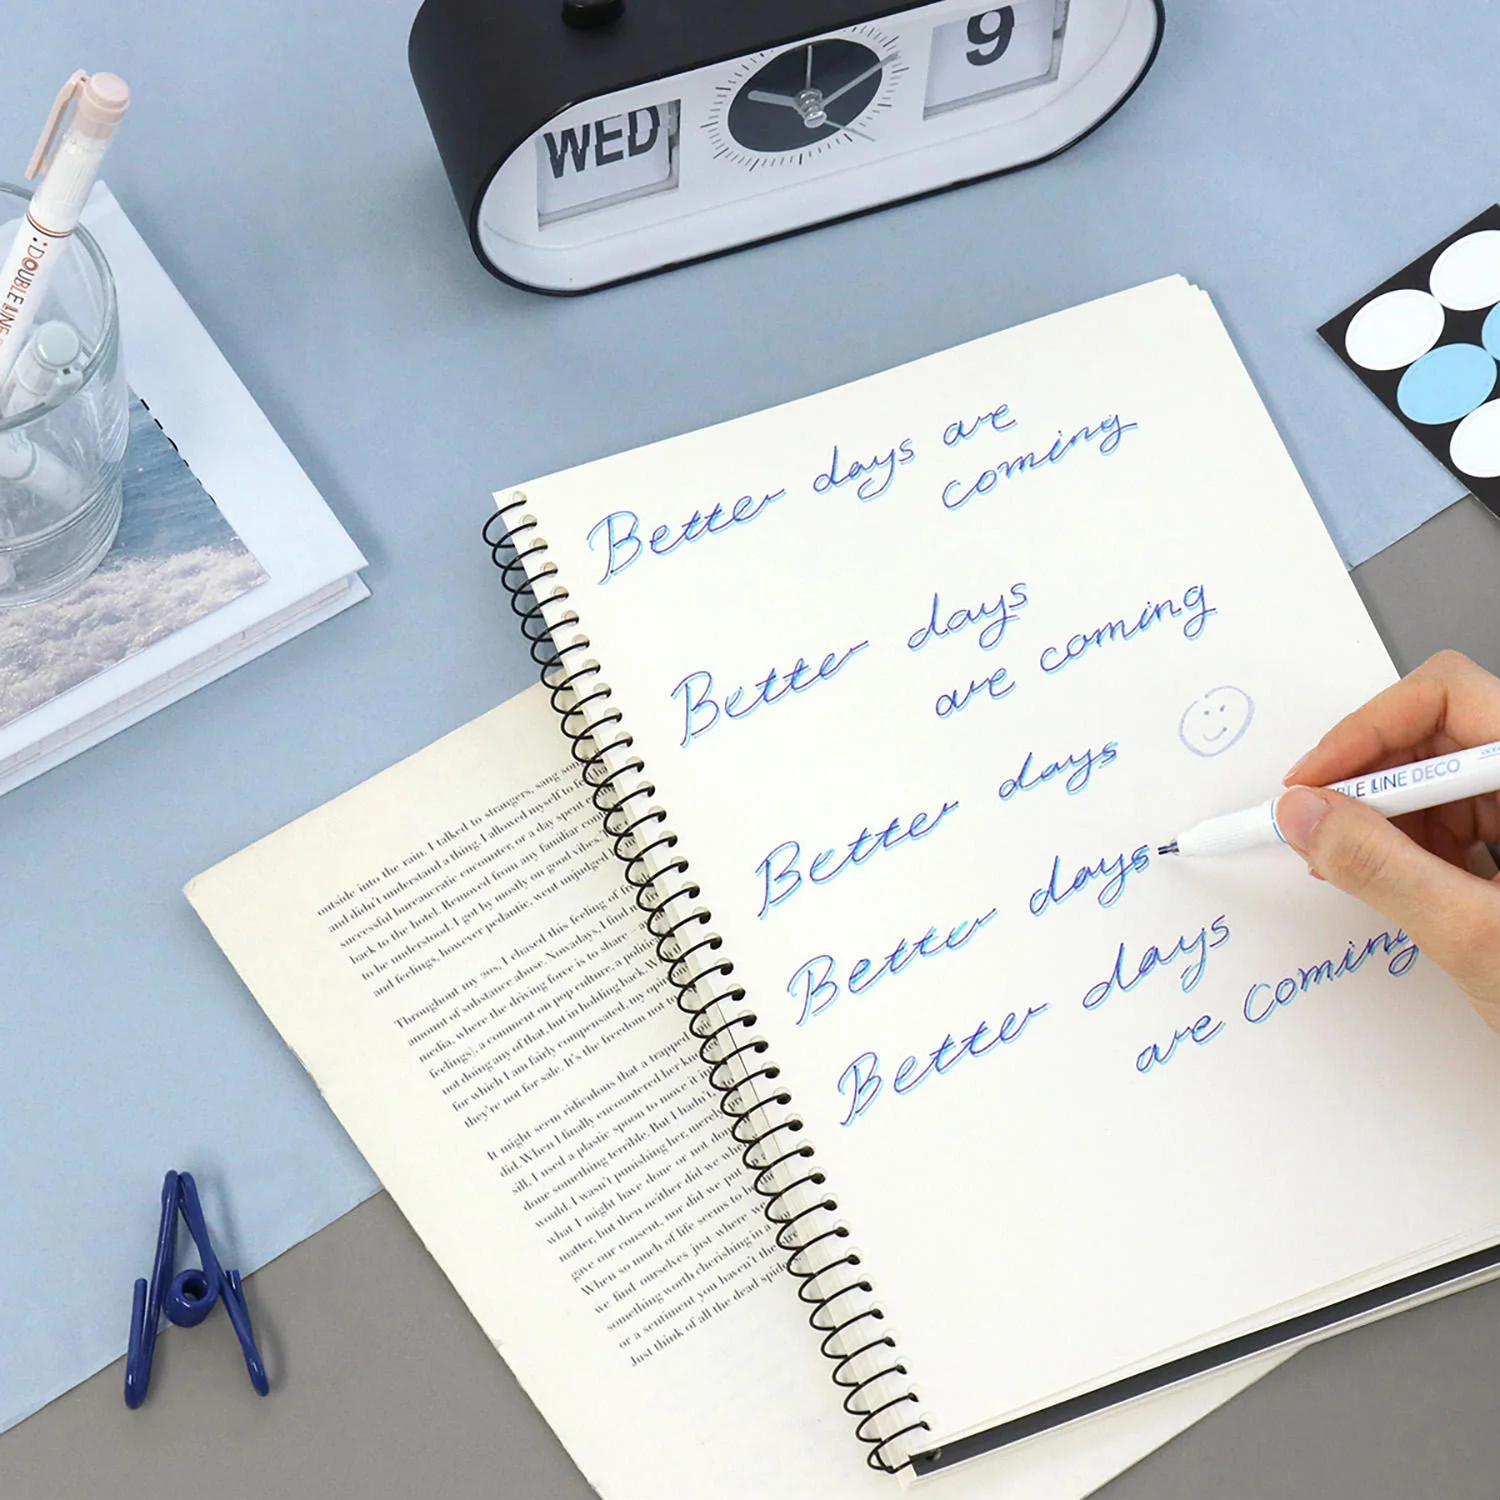 WED
9
:DOUBLE LINE
Better days are
coming
Better days
are coming
Better days
Better days
BLE LINE DECO
Better days
are coming
outside into the rain. I talked to strangers, sang
and didn't understand a thing. I allowed myself to
successful bureaucratic encounter, or a day spent
back to the hotel. Removed from any familiar
to be understood. I got by mostly on good vibes.
and feelings, however pedantic, went unjudged
Throughout my 20s, I chased this feeling of
amount of substance abuse. Nowadays, I find
media, where the driving force is to share
feelings), a comment on pop culture, a
not doing any of that, but in holding back.
for which I am fairly compensated, my
they're not for sale. It's the freedom not to
It might seem ridiculous that a trapped
did. When I finally encountered her
sill, I used a plastic spoon to move it
done something terrible. But I hadn't,
would. I wasn't punishing her, merely
what I might have done or not
matter, but then neither did we
gave our consent, nor did we put
When so much of life seems to
we find ourselves just where we
something worth cherishing in a
or a sentiment you haven't the
Just think of all the dead